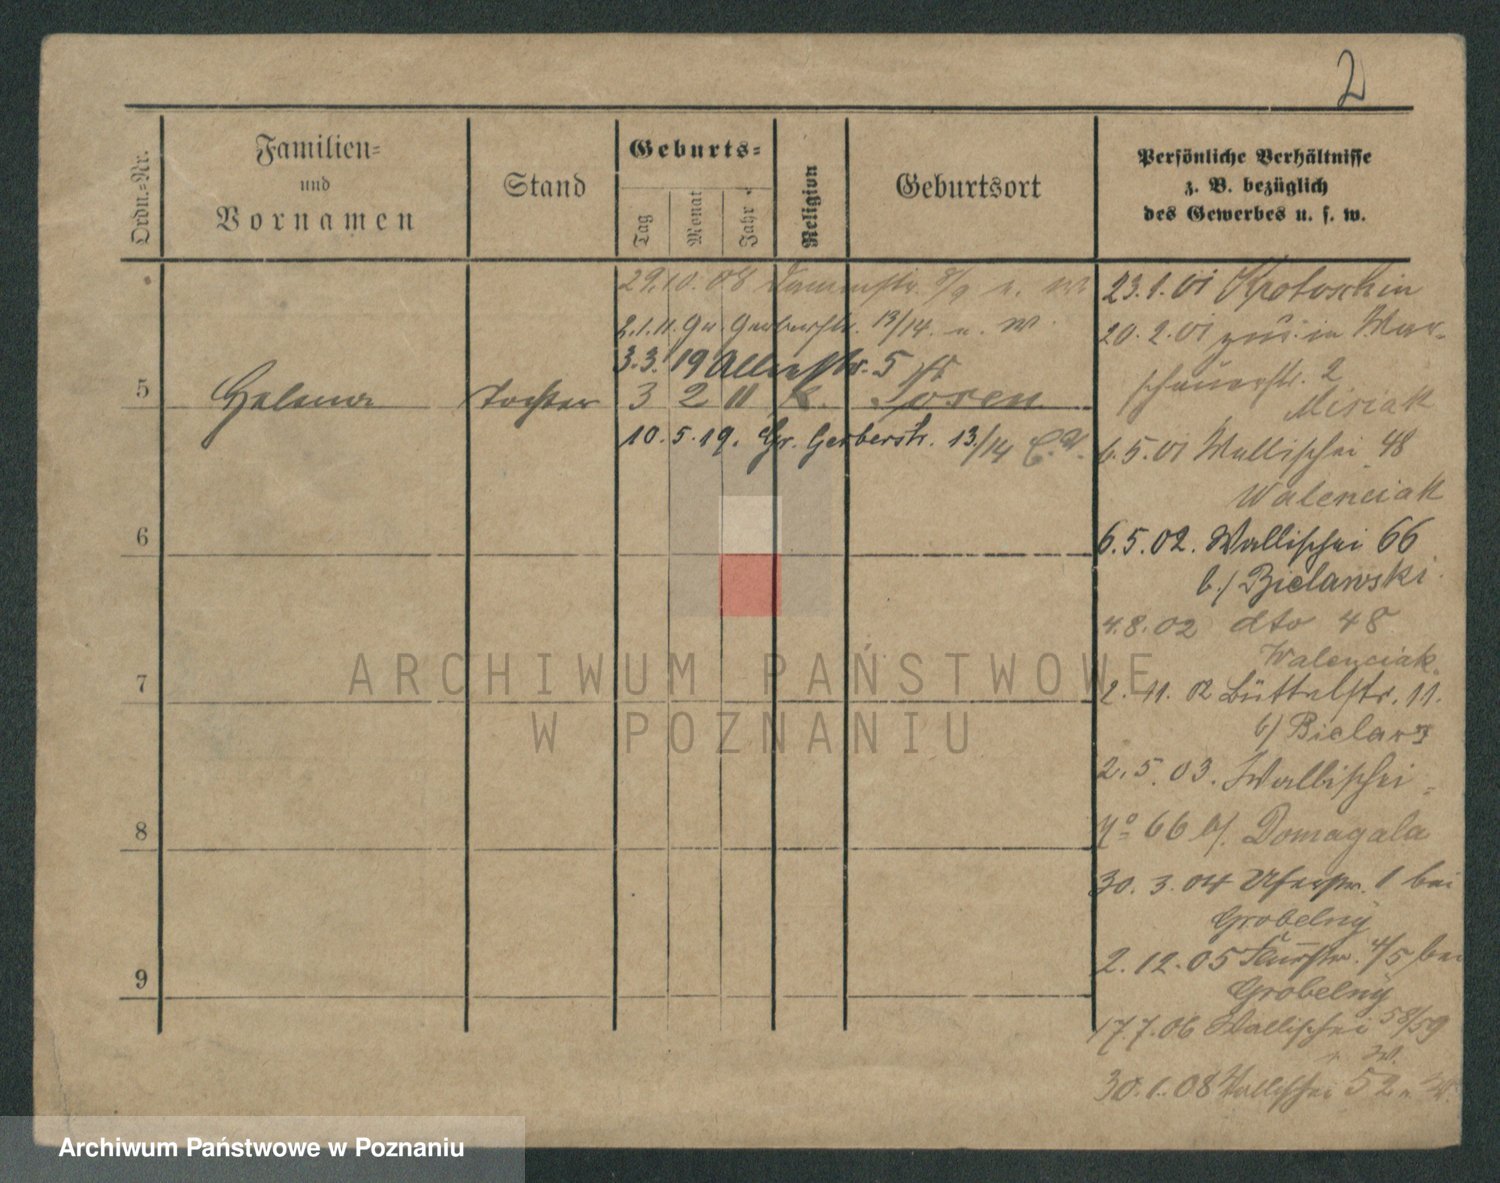 2
Ordn.=Nr.
Familien=
und
Vornamen
Stand
Geburts=
Tag
Monat
Jahr
Religion
Geburtsort
Persönliche Verhältnisse
z. B. bezüglich
des Gewerbes u. s. w.
29.10.08 Dammstr. 8/9 u. W
2.1.11. Gr. Gerberstr. 13/14. u. W.
3.3.19 Allerstr. 5
5 Helena Tochter 3 2 11 k. Posen
10.5.19. Gr. Gerberstr. 13/14
6
7
8
9
23.1.01 Krotoschin
20.2.01 zur. in War-
schauerstr. 2
Misiak
6.5.01 Wallischei 48
Walenciak
6.5.02. Wallischei 66
b./ Bielawski.
4.8.02 dto 48
Walenciak.
2.11.02 Büttelstr. 11.
b/ Bielaws
2.5.03. Wallischei
No 66 b/. Domagala
30.3.04 Uferstr. 1 bei
Grobelny
2.12.05 4/5 bei
Grobelny
17.7.06 Wallischei 58/59
u. W.
30.1.08 Wallischei 52 u. W.
ARCHIWUM PAŃSTWOWE
W POZNANIU
Archiwum Państwowe w Poznaniu